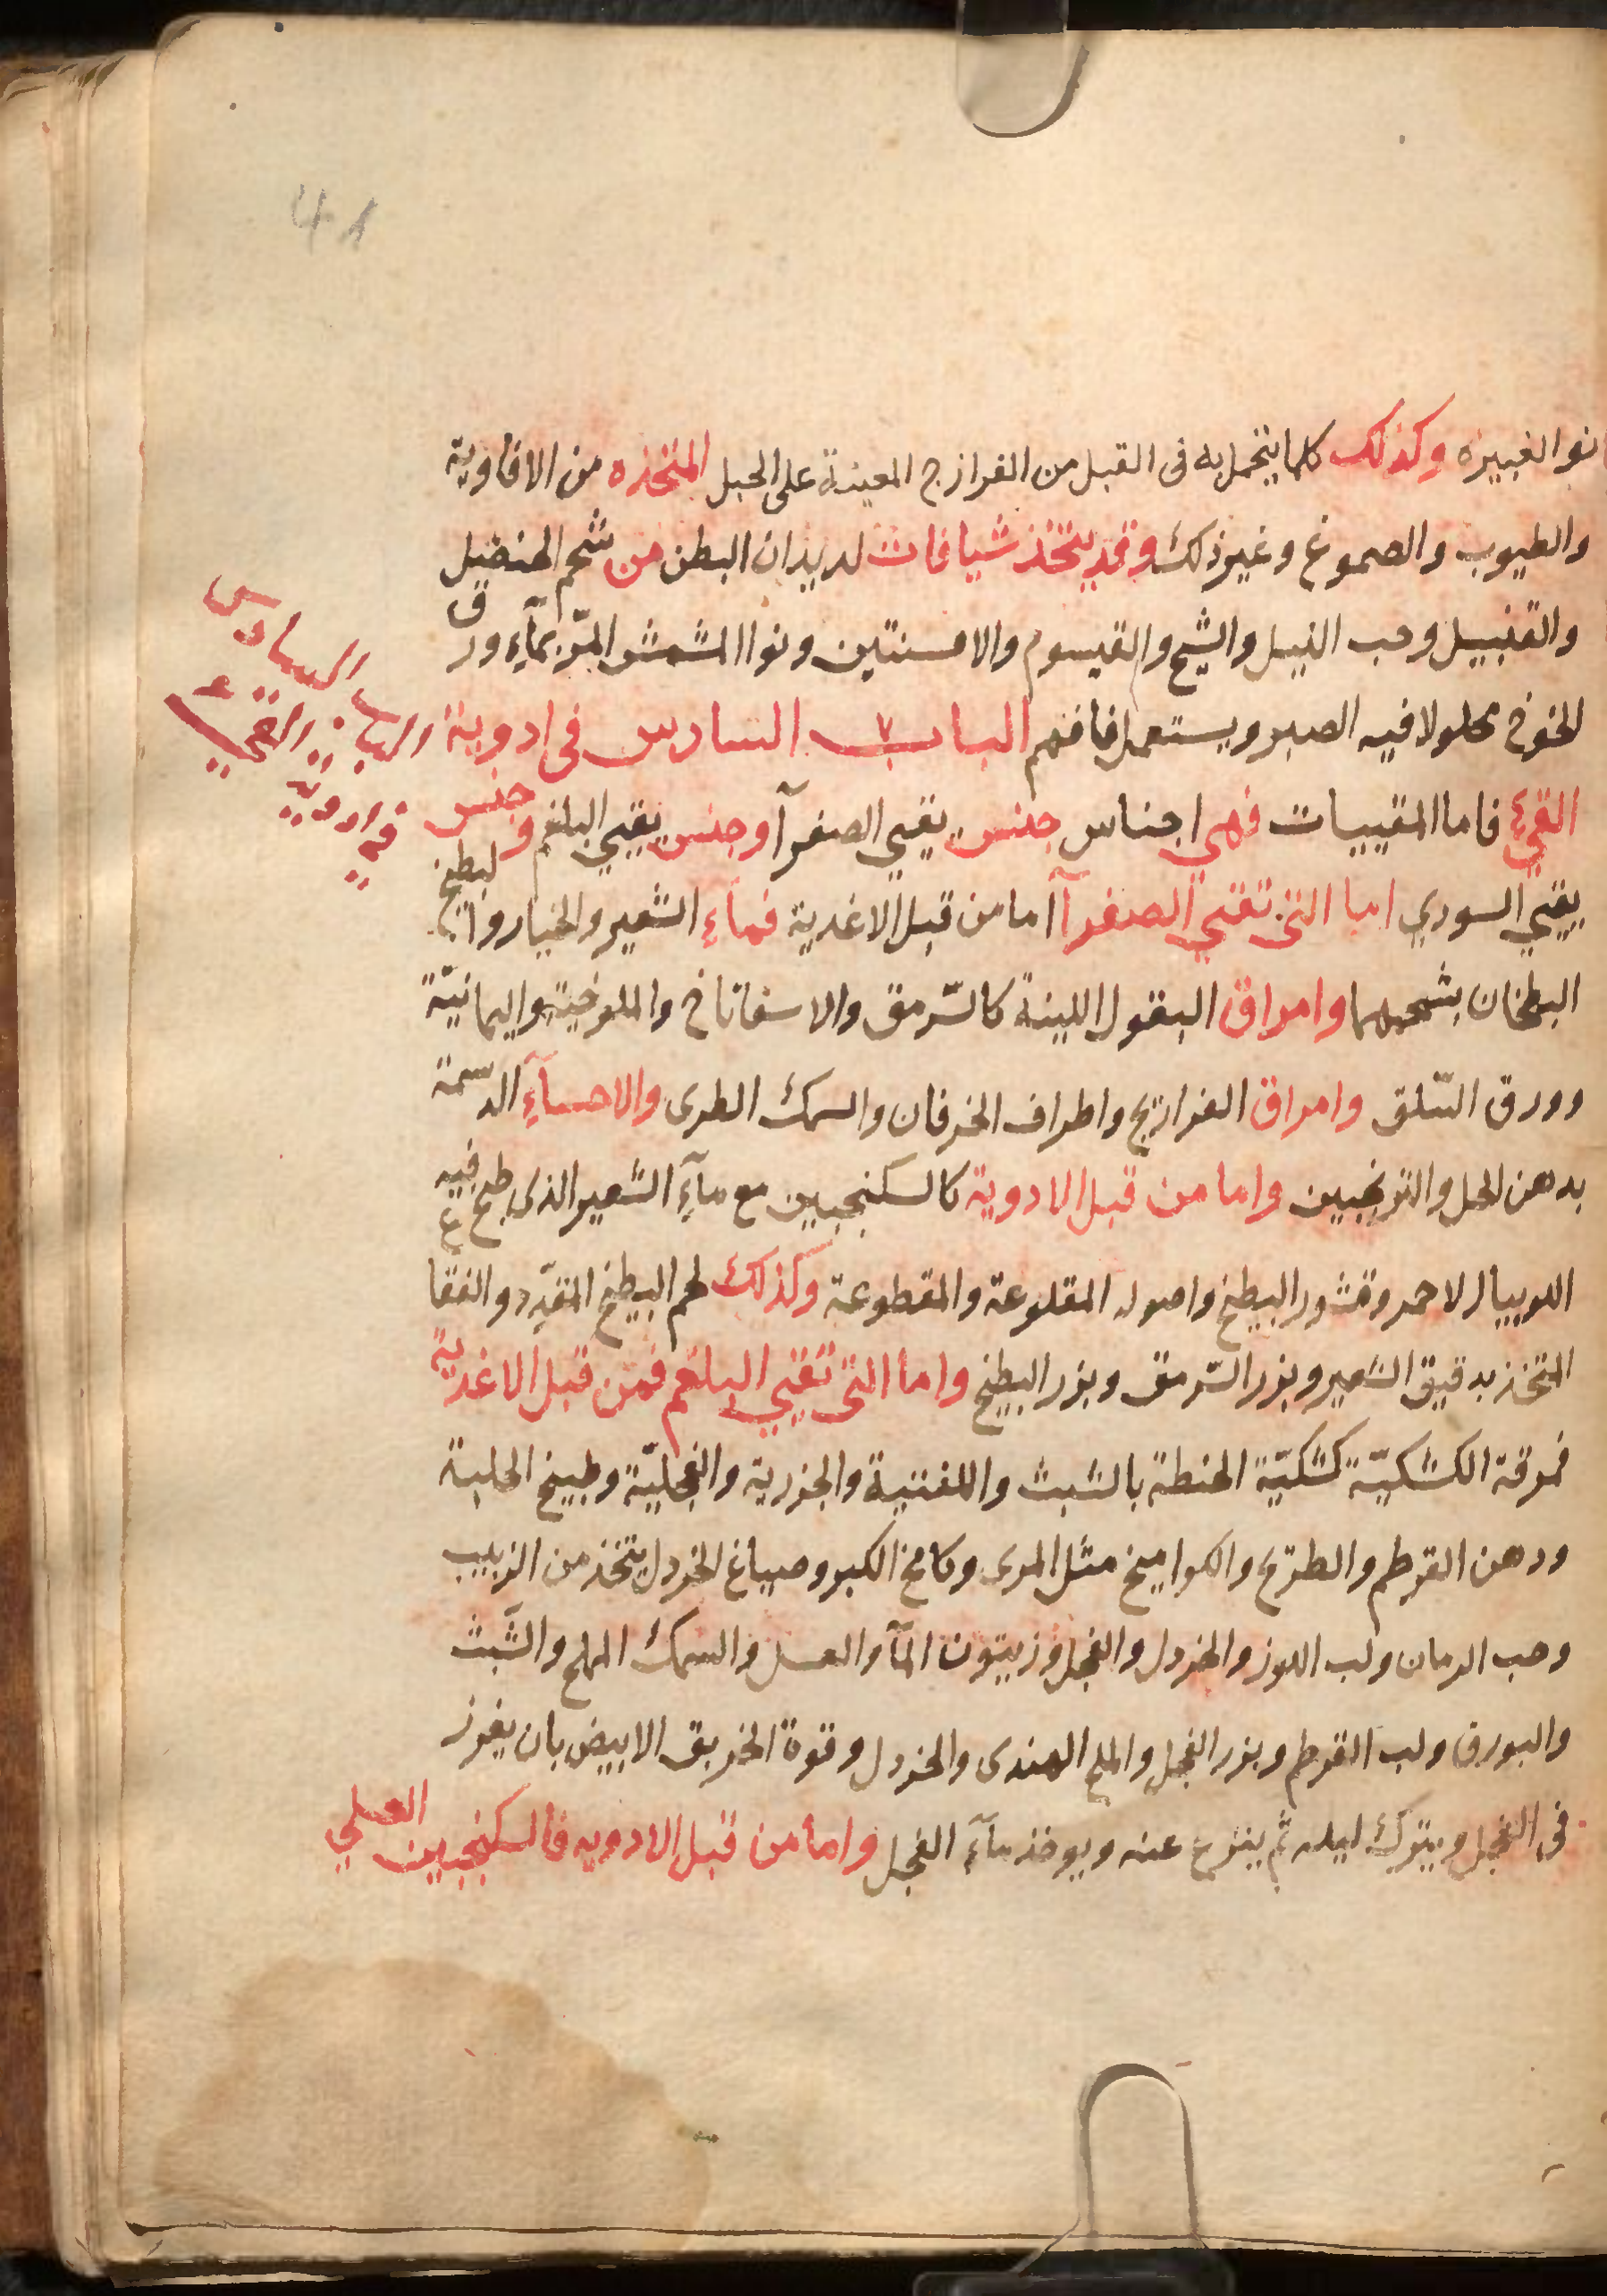 نوا الغبيزه وكذلك كلما يتحمل به فى القبل من الفرازج المعينة على الحبل المتخذه من الافاوية
والطيوب والصموغ وغير ذلك وقد يتخذ شيافات لديدان البطن من شحم الحنضل
والقنبيل وحب النيل والشيح والقيسوم والافسنتين ونوا المشمش المرّ بمآء ورق
الخوخ محلولا فيه الصبر ويستعمل فافهم الباب السادس فى ادوية
الباب السادس
فى ادوية القيء
القيء فاما المقييات فهي اجناس جنس يقيي الصفرآ وجنس يقيي البلغم وجنس
يقيي السودي اما التى تقيي الصفرآ اما من قبل الاغدية فمآء الشعير والخيار والبطيخ
البطخان بشحمهما وامراق البقول اللينة كالسّرمق والاسفاناخ والملوخية واليمانيّة
وورق السّلق وامراق الفراريج واطراف الخرفان والسمك الطرى والاحسآء الدسمة
بدهن الحل والترنجبين واما من قبل الادوية كالسكنجبين مع مآء الشعير الذى طبخ فيه
اللوبيا الاحمر وقشور البطيخ واصوله المقلوعة والمقطوعة وكذلك لحم البطيخ المقدّد والفقاع
المتخذ بدقيق الشعير وبزر السّرمق وبزر البطيخ واما التى تقيي البلغم فمن قبل الاغدية
فمرقة الكشكيّة كشكيّة الحنطة بالشبث واللفتية والجزرية والفجليّة وطبيخ الحلبة
ودهن القرطم والطرّيخ والكواميخ مثل المرى وكامخ الكبر وصباغ الخردل يتخذ من الزبيب
وحب الرمان ولب اللوز والخردل والفجل وزيتون المآ والعسل والسمك المملح والشّبث
والبورق ولب القرطم وبزر الفجل والملح الهندى والخردل وقوة الخربق الابيض بان يغرز
فى الفجل ويترك ليله ثم ينزع عنه ويوخذ مآء الفجل واما من قبل الادويه فالسكنجبين العسلي